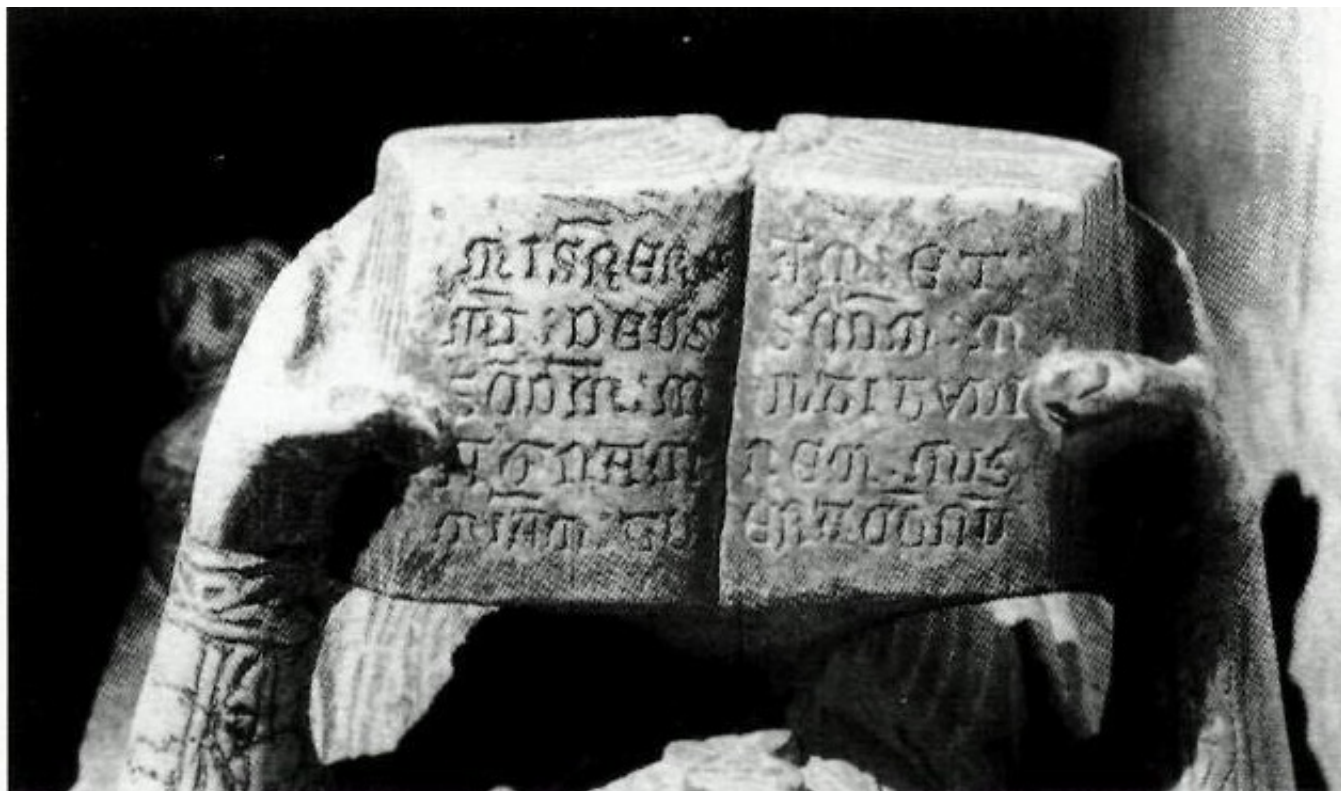 MISRERE
MI : DEUS
SCDM : M
AGNAM
MIAM : TU
AM : ET
SCDM : M
ULTITUDI
NEM : MIS
ERATIONU